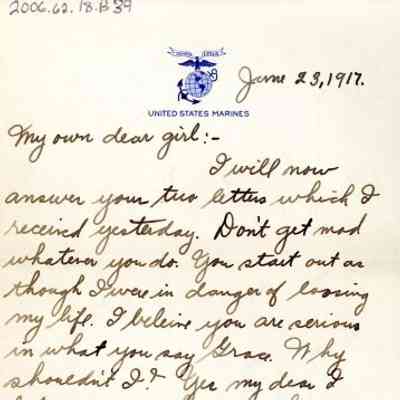 2006.62.18.B 39
June 23, 1917.
UNITED STATES MARINES
My own dear girl:-
I will now
answer your two letters which I
received yesterday. Don't get mad
whatever you do. You start out as
though I were in danger of loosing
my life. I beleive you are serious
in what you say Grace. Why
shouldn't I? Yes my dear I